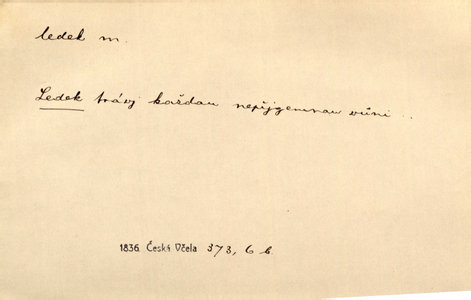 ledek m.
Ledek tráví každau nepřjgemnau vůni ..
1836. Česká Včela 373, 6 b.